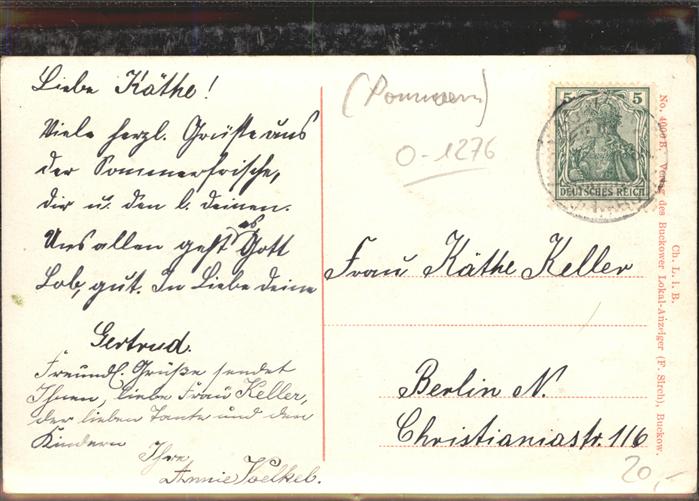 Liebe Käthe!
Viele herzl. Grüße aus
der Sommerfrische,
dir u. den l. deinen.
Uns allen geht es Gott
Lob, gut. In Liebe deine
Gertrud.
Freundl. Grüße sendet
Ihnen, liebe Frau Keller,
der lieben Tante und den
Kindern
Ihre
Annie Voelkel.
(Pommern)
0-1276
5 5
DEUTSCHES REICH
Frau Käthe Keller
Berlin N.
Christianiastr. 116
20,-
Ch. L. i. B.
No. Verlag des Buckower Lokal-Anzeiger (F. Sirch), Buckow.